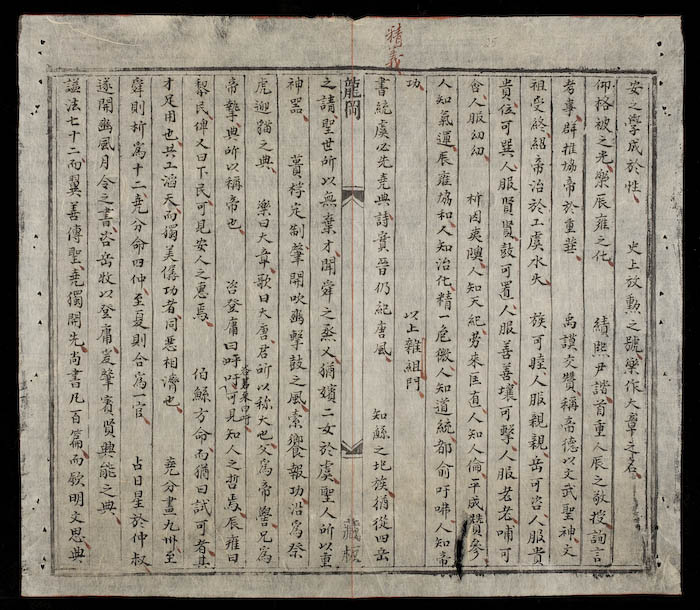 精義
安之學成於性　史上放勳之號樂作大章之名
仰格被之光樂辰雍之化　績熙尹諧首重人辰之敬授詢言
考事群推協帝於重華　禹謨交贊稱帝德以文武聖神文
祖受終紹帝治於工虞水火　族可睦人服親親岳可咨人服貴
貴位可巽人服賢賢鼓可置人服善善壤可擊人服老老哺可
含人服幼幼　因夷隩人知天紀勞來匡直人知人倫平成贊參
人知氣運辰雍協和人知治化精一危微人知道統都俞吁咈人知帝
功　以上雜組門
書統虞必先堯典詩賡晉仍紀唐風　知鯀之圯族猶從四岳
龍岡　藏板
之請聖世所以無棄才聞舜之烝乂猶嬪二女於虞聖人所以重
神器　蕢桴定制葦開吹豳擊鼓之風索饗報功沿為祭
虎迎貓之典　樂曰大章歌曰大唐君所以称大也父為帝嚳兄為
帝摯典所以稱帝也　咨登庸曰吁咨若采曰吁吁可見知人之哲焉辰雍曰
黎民俾乂曰下民可見安人之惠焉　伯鯀方命而猶曰試可者其
才足用也共工滔天而獨美僝功者同惡相濟也　堯分畫九州至
舜則析為十二堯分命四仲至夏則合為一官　占日星於仲叔
遂開豳風月令之書咨岳牧以登庸爰肇賓賢興能之典
謚法七十二而翼善傳聖堯獨開先尚書凡百篇而欽明文思典